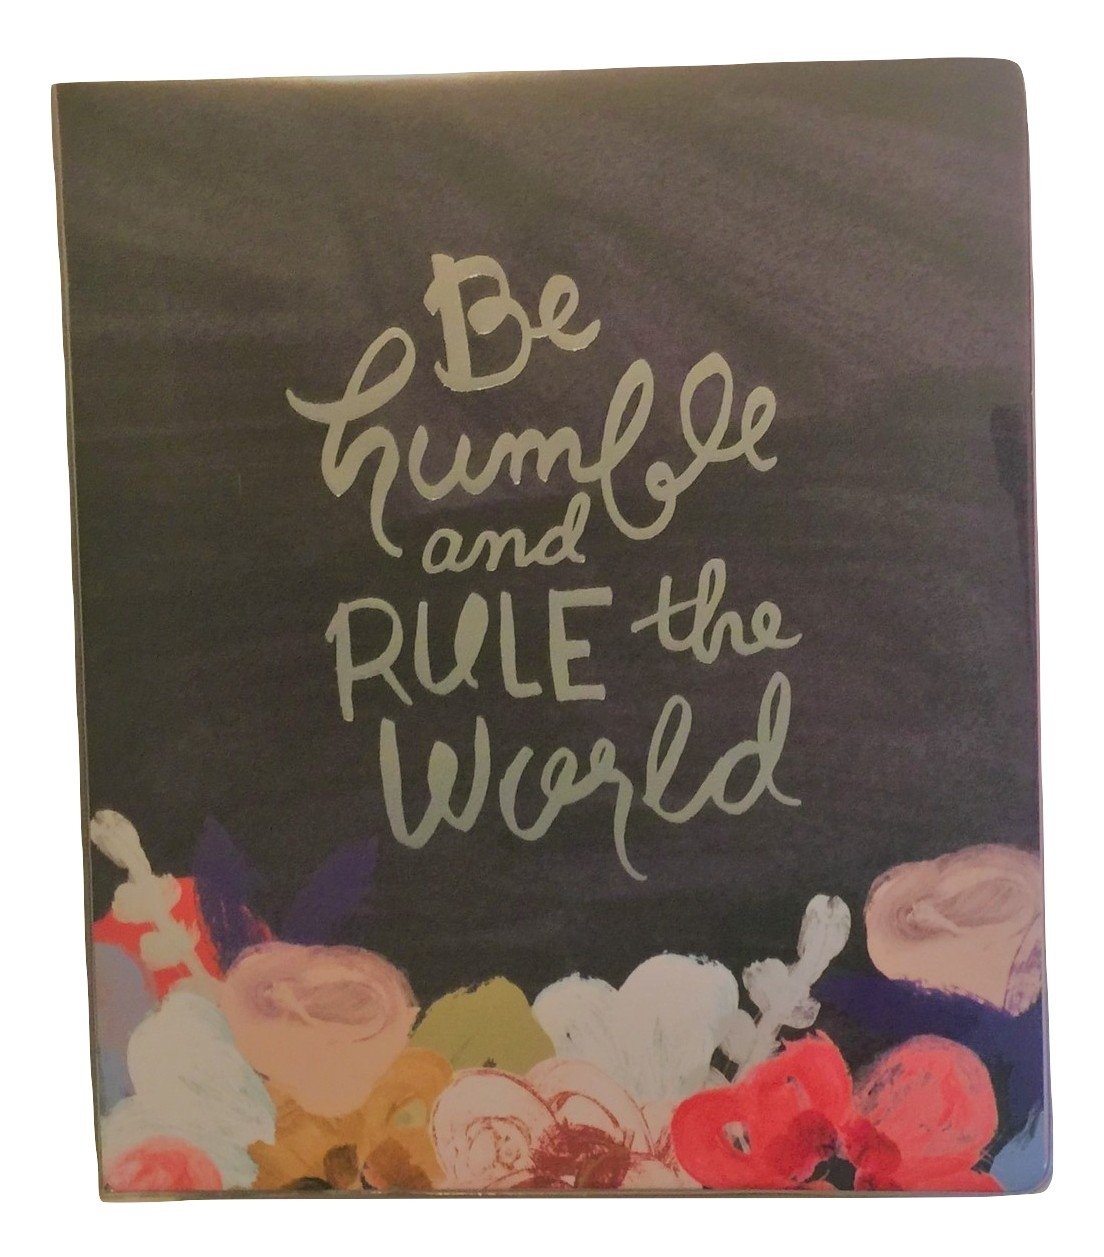 Be
humble
and
RULE the
World